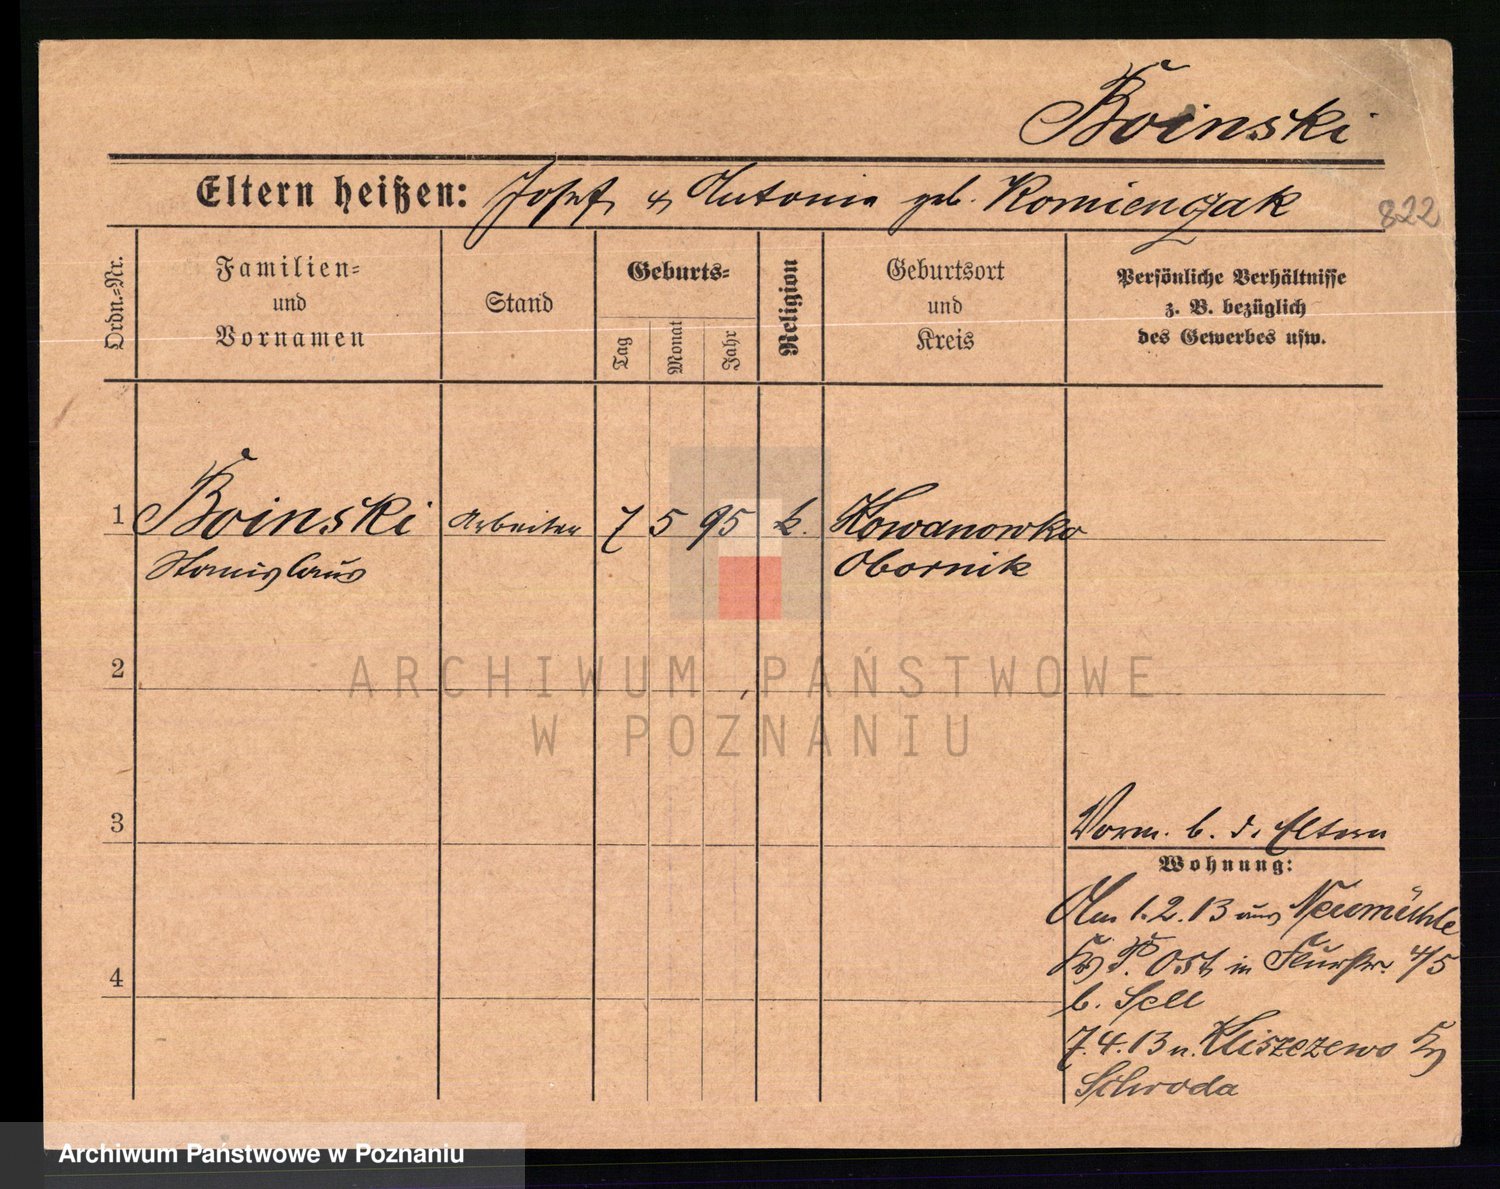 Boinski
Eltern heißen: Josef u Antonie geb. Komiengak
822
Ordn.-Nr.
Familien-
und
Vornamen
Stand
Geburts-
Tag
Monat
Jahr
Religion
Geburtsort
und
Kreis
Persönliche Verhältnisse
z. B. bezüglich
des Gewerbes usw.
1 Boinski Arbeiter 7 5 95 k. Kowanowko
Stanislaus Obornik
2
ARCHIWUM PAŃSTWOWE
W POZNANIU
3
Vorm. b. d. Eltern
Wohnung:
Am 1.2.13 aus Neumühle
Krs P. Ost in Flurstr. 4/5
b. Sell
4
7.4.13 n. Kliszczewo Krs
Schroda
Archiwum Państwowe w Poznaniu